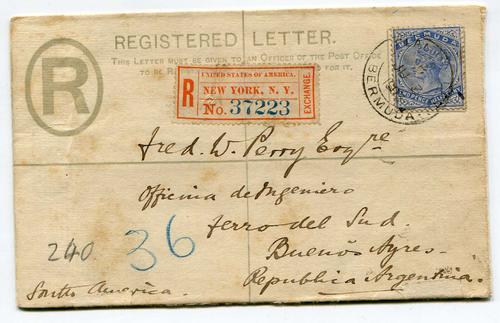 REGISTERED LETTER.
THIS LETTER MUST BE GIVEN TO AN OFFICER OF THE POST OFFICE
TO BE
FOR IT.
R
BERMUDA
BERMUDA
R
UNITED STATES OF AMERICA.
NEW YORK, N. Y.
No. 37223
EXCHANGE.
Fred. W. Perry Esqre
Officina de Ingeniero
ferro del Sud.
Buenos Ayres.
Republica Argentina.
240
36
South America.